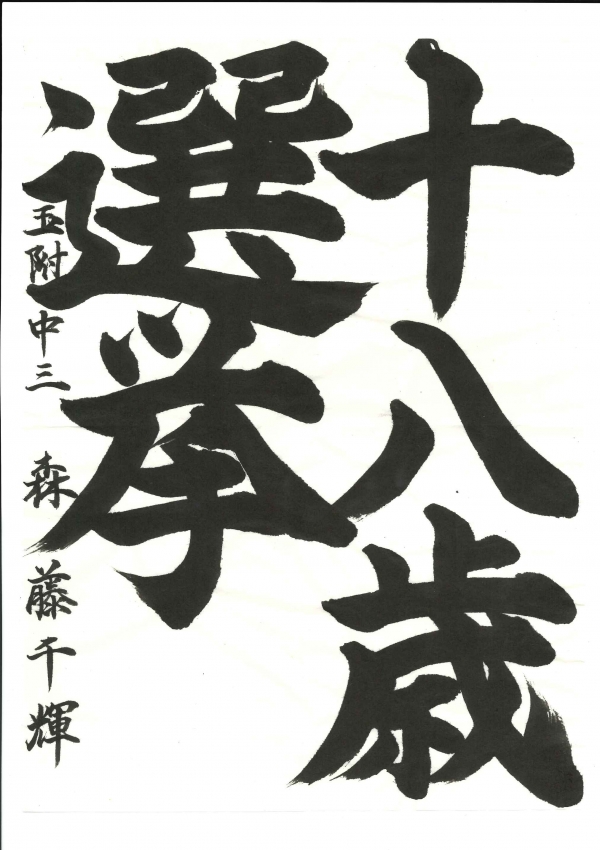 十八歳
選挙
玉附中三 森藤千輝